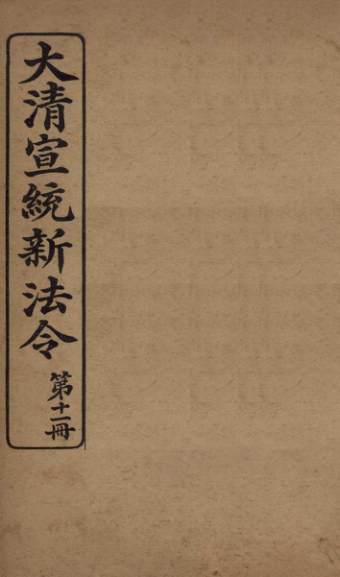 大清宣統新法令
第十一冊